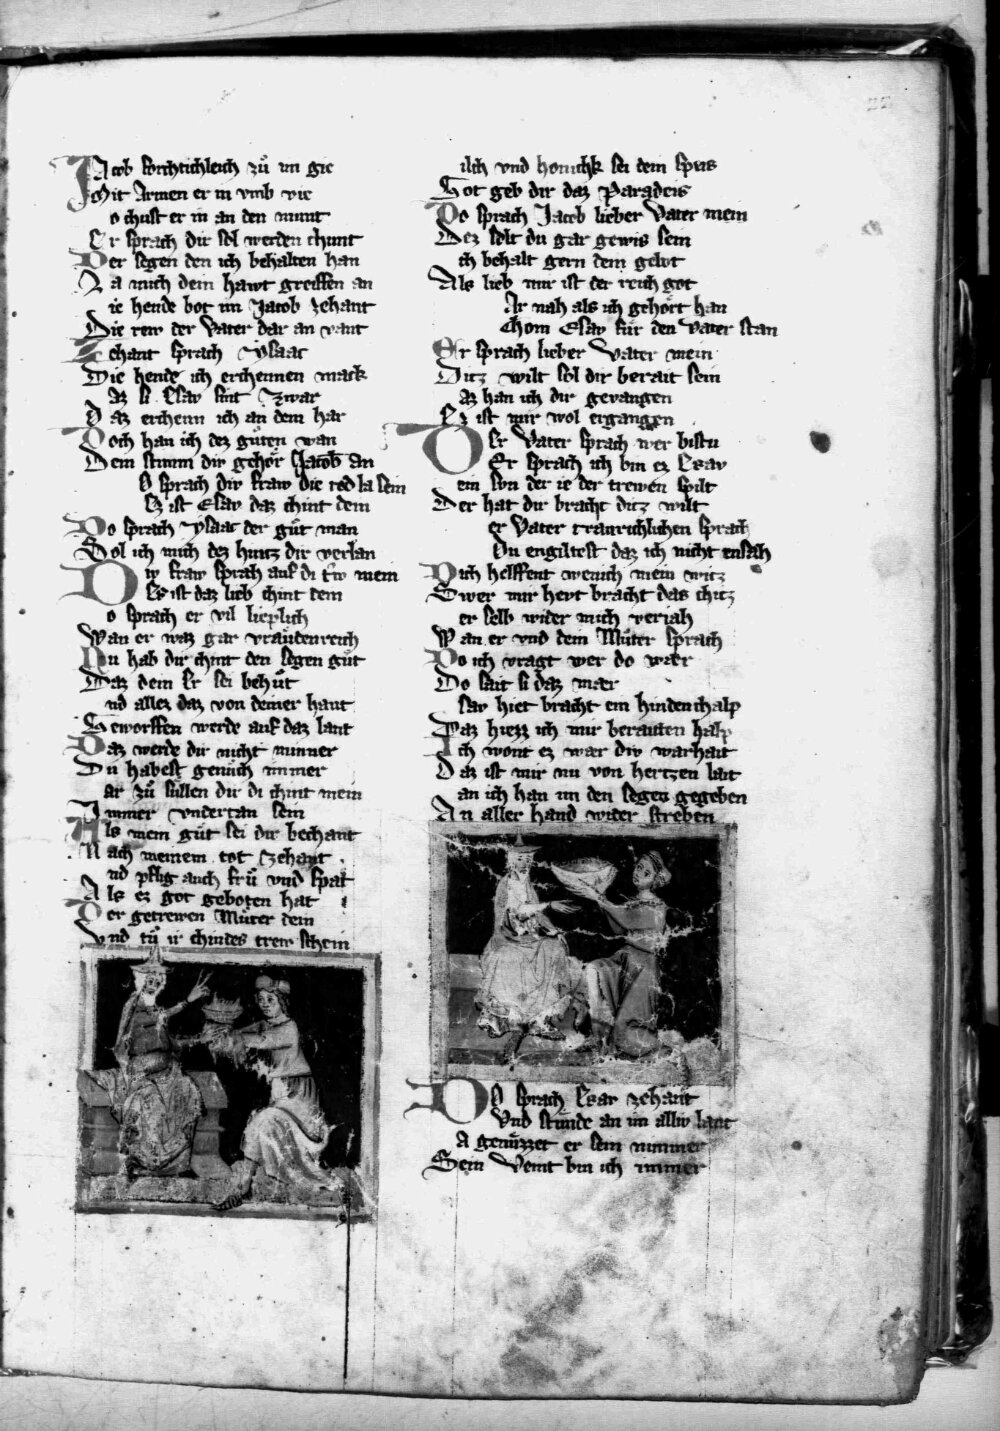 Jacob forchtichleich zuͦ im gie
Mit Armen er in vmb vie
o chust er in an den munt
Er sprach dir sol werden chunt
Der segen den ich behalten han
La mich dein hawt greiffen an
ie hende bot im Jacob zehant
Die rew der Vater dar an vant
Zehant sprach Ysaac
Die hende ich erchennen mack
az si Esav sint zwar
Daz erchenn ich an dem har
Doch han ich dez guͤten wan
Dein stimm dir gehoͤr Jacob an
O sprach div fraw die red la sein
Ez ist Esav daz chint dein
Do sprach ysaac der guͤt man
Sol ich mich dez hintz dir verlan
Div fraw sprach auf di trw mein
Er ist daz lieb chint dein
o sprach er vil lieplich
Wan er waz gar vraͤudenreich
Nu hab dir chint den segen guͦt
Daz dein Er sei behuͤt
nd allez daz von deiner haut
Geworffen werde auf daz lant
Daz werde dir nicht minner
Du habest genuͤch immer
ar zuͦ sullen dir di chint mein
Immer vndertan sein
Als mein guͦt sei dir bechant
Nach meinem tot zehant
nd pflig auch fruͤ vnd spat
Als ez got geboten hat
Der getrewen Muͦter dein
Vnd tuͦ ir chindes trew schein
ilch vnd honichk sei dein speis
Got geb dir daz Paradeis
Do sprach Jacob lieber Vater mein
Dez solt du gar gewis sein
ch behalt gern dein gebot
Als lieb mir ist der reich got
Ar nah als ich gehoͤrt han
Chom Esav fuͤr den Vater stan
Er sprach lieber Vater mein
Ditz wilt sol dir berait sein
az han ich dir gevangen
Ez ist mir wol ergangen
Der Vater sprach wer bistu
Er sprach ich bin ez Esav
ein son der ie der trewen spilt
Der hat dir bracht ditz wilt
er Vater traurichlichen sprach
Du engiltest daz ich nicht ensah
Dich helffent wenich mein witz
Swer mir hevt bracht das chitz
er selb wider mich veriah
Wan er vnd dein Muͦter sprach
Do ich vragt wer do waͤr
Do sait si daz maͤr
sav hiet bracht ein hindenchalp
Daz hiezz ich mir beraiten halp
Ich wont ez war div warhait
Daz ist mir nu von hertzen lait
an ich han im den segen gegeben
An aller hand wider streben
DO sprach Esav zehant
Vnd stuͤnde an im alliv lant
A genuͤzzet er sein nimmer
Sein Veint bin ich immer